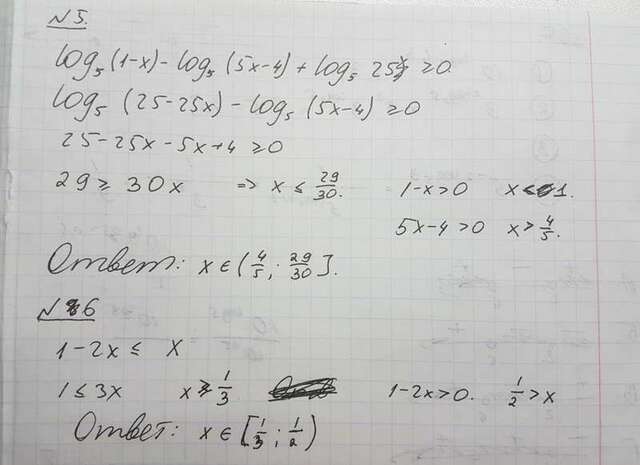 N 5.
log₅(1-x) - log₅(5x-4) + log₅ 25 ≥ 0
log₅ (25-25x) - log₅ (5x-4) ≥ 0
25-25x-5x+4 ≥ 0
29 ≥ 30x => x ≤ 29/30. 1-x>0 x<1.
5x-4>0 x>4/5.
Ответ: x ∈ (4/5; 29/30].
N 6
1-2x ≤ x
1 ≤ 3x x ≥ 1/3 1-2x>0. 1/2 > x
Ответ: x ∈ [1/3; 1/2)